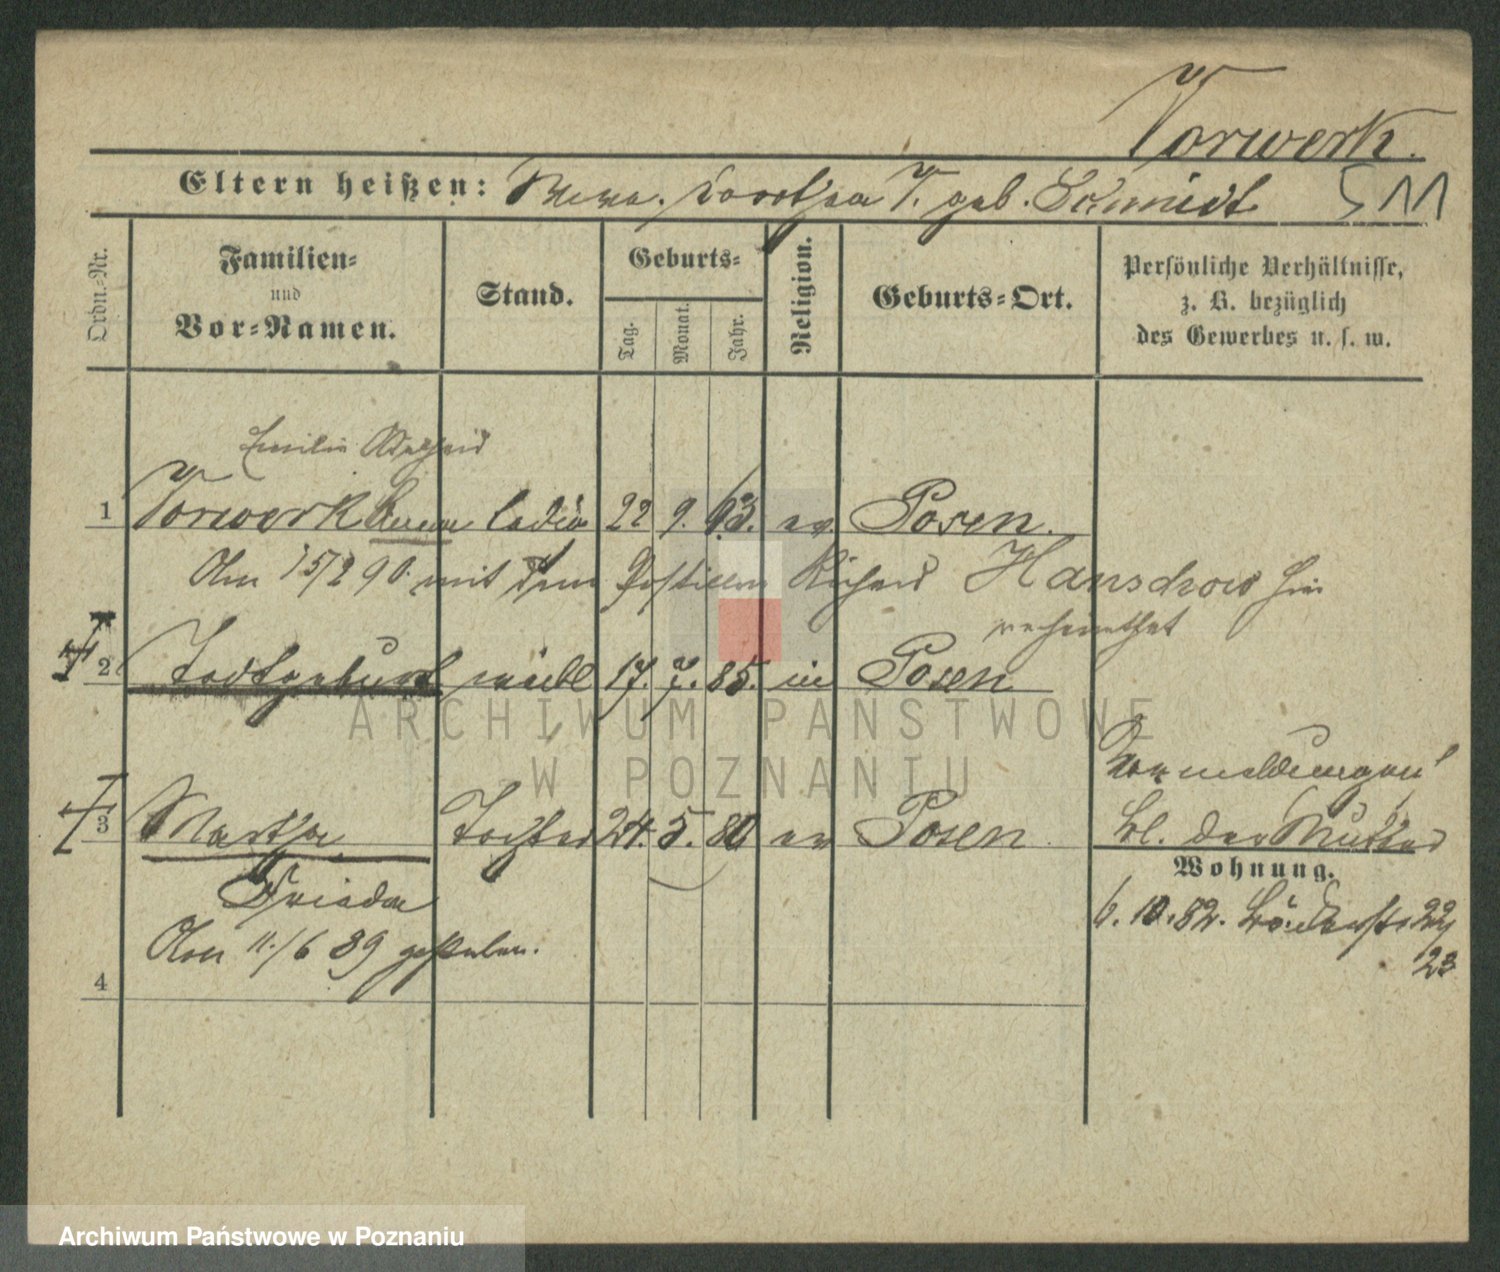 Vorwerk.
Eltern heißen: Wwe. Dorothea V. geb. Schmidt
511
Ordn.-Nr.
Familien- und Vor-Namen.
Stand.
Geburts-
Tag.
Monat.
Jahr.
Religion.
Geburts-Ort.
Persönliche Verhältnisse,
z. B. bezüglich
des Gewerbes u. s. w.
Emilie Adelheid
1 Vorwerk Anna ledig 22 9. 63. ev Posen.
Am 15/2 90. mit dem Postillon Richard Hanschow hier
verheirathet
2 Todtgeburt weibl 17. 7. 85. in Posen
Vormeldungen
3 Martha Tochter 24. 5. 80 ev Posen Bl. der Mutter
Wohnung.
Frieda
6. 10. 82. 22/
23
Am 11./6 89 gestorben.
4
ARCHIWUM PAŃSTWOWE
W POZNANIU
Archiwum Państwowe w Poznaniu